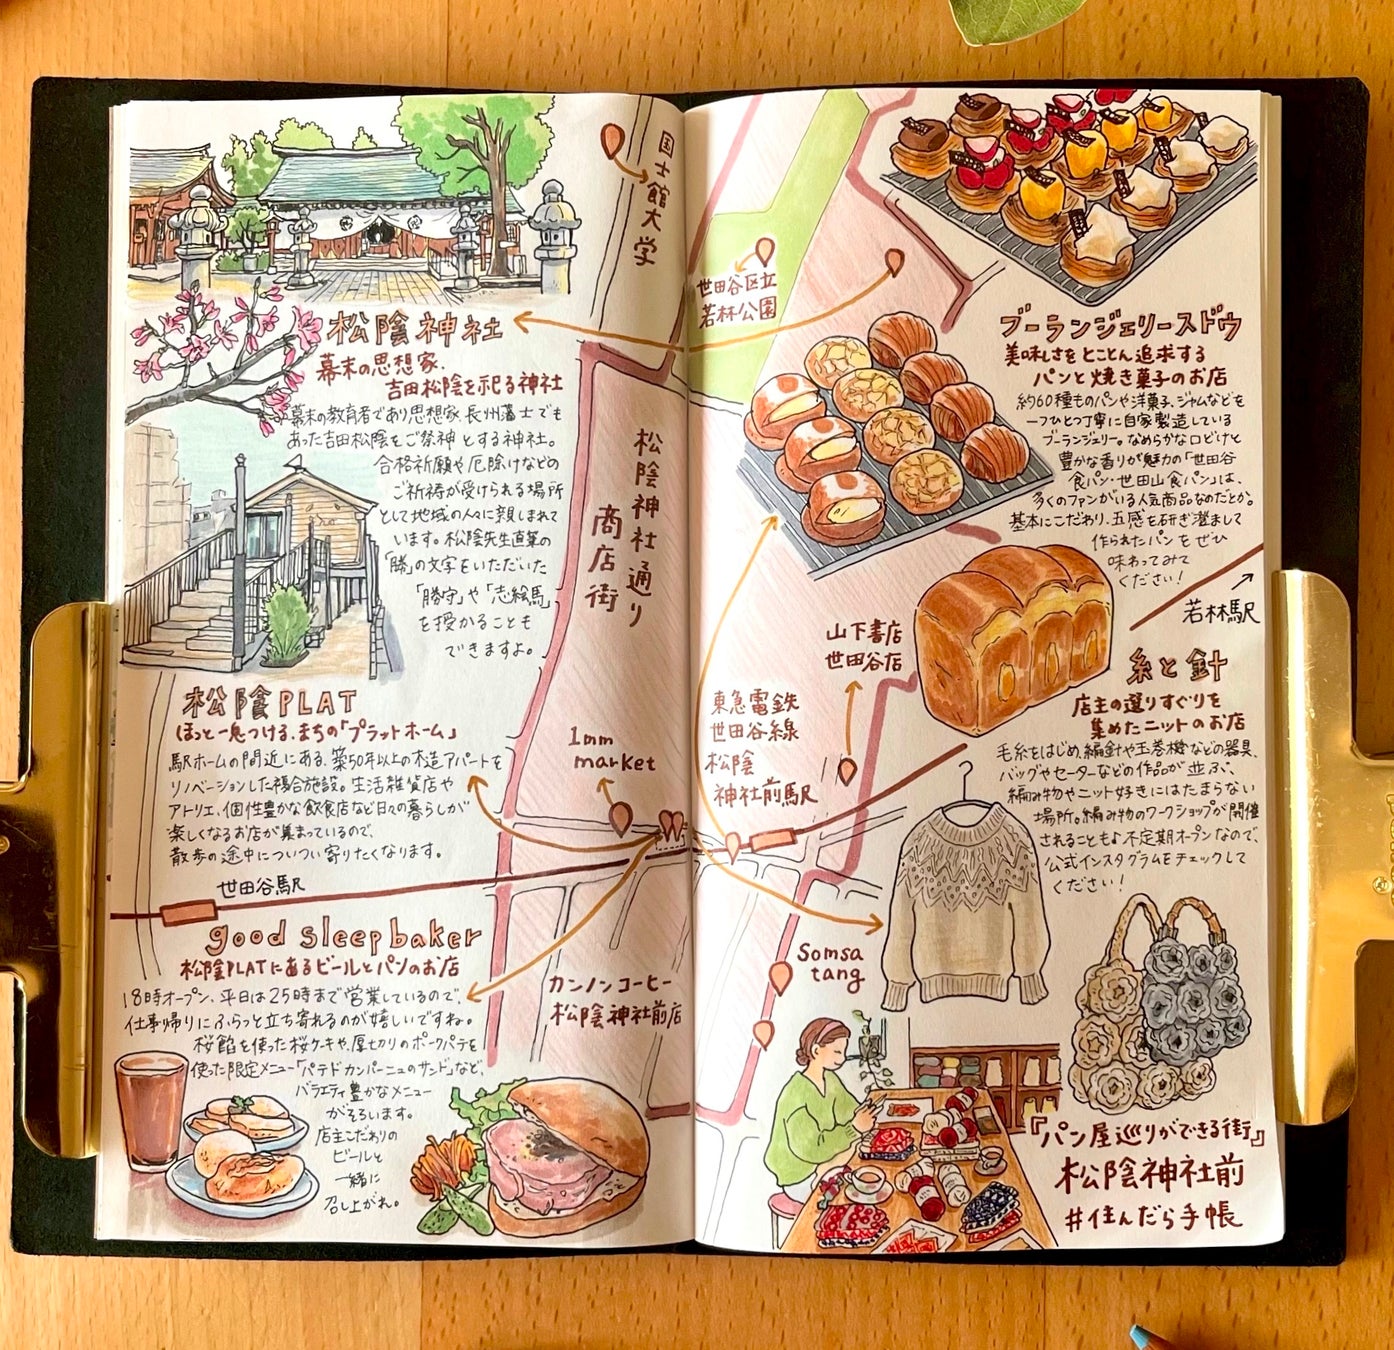 国士館大学
松陰神社
幕末の思想家、
吉田松陰を祀る神社
幕末の教育者であり思想家、長州藩士でも
あった吉田松陰をご祭神とする神社。
合格祈願や厄除けなどの
ご祈祷が受けられる場所
として地域の人々に親しまれて
います。松陰先生直筆の
「勝」の文字をいただいた
「勝守」や「志絵馬」
を授かることも
できますよ。
松陰PLAT
ほっと一息つける、まちの「プラットホーム」
駅ホームの間近にある、築50年以上の木造アパートを
リノベーションした複合施設。生活雑貨店や
アトリエ、個性豊かな飲食店など日々の暮らしが
楽しくなるお店が集まっているので、
散歩の途中についつい寄りたくなります。
世田谷駅
good sleep baker
松陰PLATにあるビールとパンのお店
18時オープン、平日は25時まで営業しているので、
仕事帰りにふらっと立ち寄れるのが嬉しいですね。
桜餡を使った桜ケーキや、厚切りのポークパテを
使った限定メニュー「パテドカンパーニュのサンド」など、
バラエティ豊かなメニュー
がそろいます。
店主こだわりの
ビールと
一緒に
召し上がれ。
松陰神社通り
商店街
1mm
market
カンノンコーヒー
松陰神社前店
世田谷区立
若林公園
ブーランジェリースドウ
美味しさをとことん追求する
パンと焼き菓子のお店
約60種ものパンや洋菓子、ジャムなどを
一つひとつ丁寧に自家製造している
ブーランジェリー。なめらかな口どけと
豊かな香りが魅力の「世田谷
食パン・世田山食パン」は、
多くのファンがいる人気商品なのだとか。
基本にこだわり、五感を研ぎ澄まして
作られたパンをぜひ
味わってみて
ください!
若林駅
山下書店
世田谷店
東急電鉄
世田谷線
松陰
神社前駅
糸と針
店主の選りすぐりを
集めたニットのお店
毛糸をはじめ、編針や玉巻機などの器具、
バッグやセーターなどの作品が並ぶ、
編み物やニット好きにはたまらない
場所。編み物のワークショップが開催
されることも♪不定期オープンなので、
公式インスタグラムをチェックして
ください!
Somsa
tang
『パン屋巡りができる街』
松陰神社前
#住んだら手帳